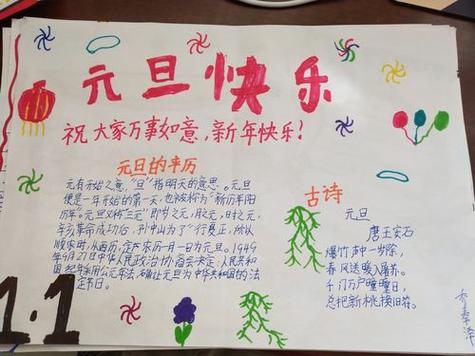 元旦快乐
祝大家万事如意,新年快乐!
元旦的来历
元有开始之意,"旦"指明天的意思。元旦
便是一年开始的第一天,也被称为"新历年阳
历年"。元旦又称"三元"即岁之元,月之元,时之元,
辛亥革命成功后,孙中山为了"行夏正,所以
顺农时,从西历,
定农历一月一日为元旦。1949
年9月27日中华人民政治协商会议决定:人民共和
国纪年采用公元年法,确让元旦为中华共和国的法
定节日。
古诗
元旦
唐王安石
爆竹声中一岁除,
春风送暖入屠苏。
千门万户曈曈日,
总把新桃换旧符。
1.1